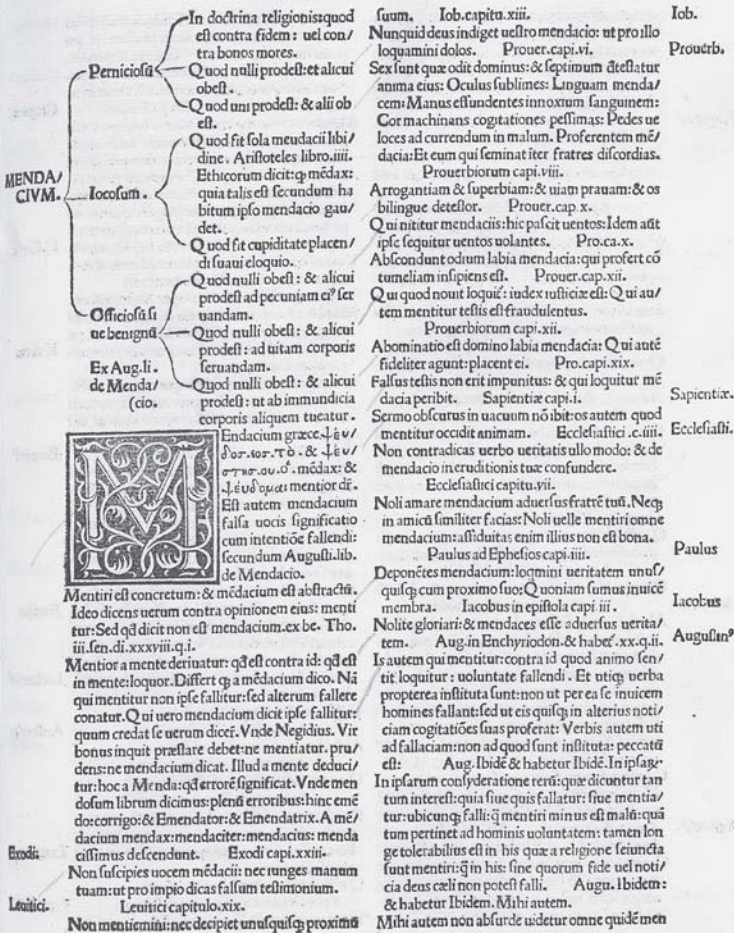 In doctrina religionis:quod
est contra fidem: uel con/
tra bonos mores.
Perniciosū
Quod nulli prodest:et alicui
obest.
Quod uni prodest: & alii ob
est.
Quod fit sola meudacii libi/
dine. Aristoteles libro.iiii.
Ethicorum dicit:ꝙ mēdax:
quia talis est secundum ha
bitum ipso mendacio gau/
det.
MENDA/
CIVM.
Iocosum.
Quod fit cupiditate placen/
di suaui eloquio.
Quod nulli obest: & alicui
prodest ad pecuniam eiꝰ ser
uandam.
Officiosū si
ue benignū
Quod nulli obest: & alicui
prodest: ad uitam corporis
seruandam.
Ex Aug.li.
de Menda/
(cio.
Quod nulli obest: & alicui
prodest: ut ab immundicia
corporis aliquem tueatur.
MEndacium græce.ψευ/
δοσ.ιοσ.τὸ. & ψευ/
στησ.ου.ὁ. mēdax: &
ψευδομαι mentior dr̄.
Est autem mendacium
falsa uocis significatio
cum intentiōe fallendi:
secundum Augusti.lib.
de Mendacio.
Mentiri est concretum: & mēdacium est abstractū.
Ideo dicens uerum contra opinionem eius: menti
tur:Sed qđ dicit non est mendacium.ex be. Tho.
iii.sen.di.xxxviii.q.i.
Mentior a mente deriuatur: qđ est contra id: qđ est
in mente:loquor. Differt ꝙ a mēdacium dico. Nā
qui mentitur non ipse fallitur:sed alterum fallere
conatur. Qui uero mendacium dicit ipse fallitur:
quum credat se uerum dicer̄. Vnde Negidius. Vir
bonus inquit præstare debet:ne mentiatur. pru/
dens:ne mendacium dicat. Illud a mente deduci/
tur:hoc a Menda:qđ errorē significat. Vnde men
dosum librum dicimus:plenū erroribus:hinc emē
do:corrigo:& Emendator:& Emendatrix. A mē/
dacium mendax:mendaciter:mendacius: menda
cissimus descendunt. Exodi capi.xxiii.
Exodi.
Non suscipies uocem mēdacii: nec iunges manum
tuam:ut pro impio dicas falsum testimonium.
Leuitici capitulo.xix.
Leuitici.
Non mentiemini:nec decipiet unusquisꝙ proximū
suum. Iob.capitu.xiii.
Iob.
Nunquid deus indiget uestro mendacio: ut pro illo
loquamini dolos. Prouer.capi.vi.
Prouerb.
Sex sunt quæ odit dominus:& septimum ātestatur
anima eius: Oculus sublimes: Linguam menda/
cem: Manus effundentes innoxium sanguinem:
Cor machinans cogitationes pessimas: Pedes ue
loces ad currendum in malum. Proferentem mē/
dacia:Et eum qui seminat iter fratres discordias.
Prouerbiorum capi.viii.
Arrogantiam & superbiam:& uiam prauam:& os
bilingue detestor. Prouer.cap x.
Qui nititur mendaciis:hic pascit uentos:Idem aūt
ipse sequitur uentos uolantes. Pro.ca.x.
Abscondunt odium labia mendacia:qui profert cō
tumeliam insipiens est. Prouer.cap.xii.
Qui quod nouit loquit᷑: iudex iusticiæ est: Qui au/
tem mentitur testis est fraudulentus.
Prouerbiorum capi.xii.
Abominatio est domino labia mendacia: Qui autē
fideliter agunt:placent ei. Pro.capi.xix.
Falsus testis non erit impunitus: & qui loquitur mē
dacia peribit. Sapientiæ capi.i.
Sapientiæ.
Sermo obscurus in uacuum nō ibit:os autem quod
mentitur occidit animam. Ecclesiastici .c.iiii.
Ecclesiasti.
Non contradicas uerbo ueritatis ullo modo: & de
mendacio ineruditionis tuæ confundere.
Ecclesiastici capitu.vii.
Noli amare mendacium aduersus fratrē tuū. Neꝙ
in amicū similiter facias: Noli uelle mentiri omne
mendacium: assiduitas enim illius non est bona.
Paulus ad Ephesios capi.iiii.
Paulus
Deponētes mendacium:loquim ueritatem unus/
quisꝙ cum proximo suo: Quoniam sumus inuicē
membra. Iacobus in epistola capi iii.
Iacobus
Nolite gloriari: & mendaces esse aduersus uerita/
tem. Aug.in Enchyriodon.& habet᷑.xx.q.ii.
Augustinꝰ
Is autem qui mentitur:contra id quod animo sen/
tit loquitur: uoluntate fallendi. Et utiꝙ uerba
propterea instituta sunt:non ut per ea se inuicem
homines fallant:sed ut eis quisꝙ in alterius noti/
ciam cogitatiōes suas proferat: Verbis autem uti
ad fallaciam:non ad quod sunt instituta: peccatū
est: Aug. Ibidē & habetur Ibidē. In ipsaꝝ
In ipsarum consyderatione rerū:quæ dicuntur tan
tum interest:quia siue quis fallatur: siue mentia/
tur:ubicunꝙ falli:q̄ mentiri minus est malū:quā
tum pertinet ad hominis uoluntatem: tamen lon
ge tolerabilius est in his quæ a religione seiuncta
sunt mentiri:q̄ in his: sine quorum fide uel noti/
cia deus cæli non potest falli. Augu. Ibidem:
& habetur Ibidem. Mihi autem.
Mihi autem non absurde uidetur omne quidē men